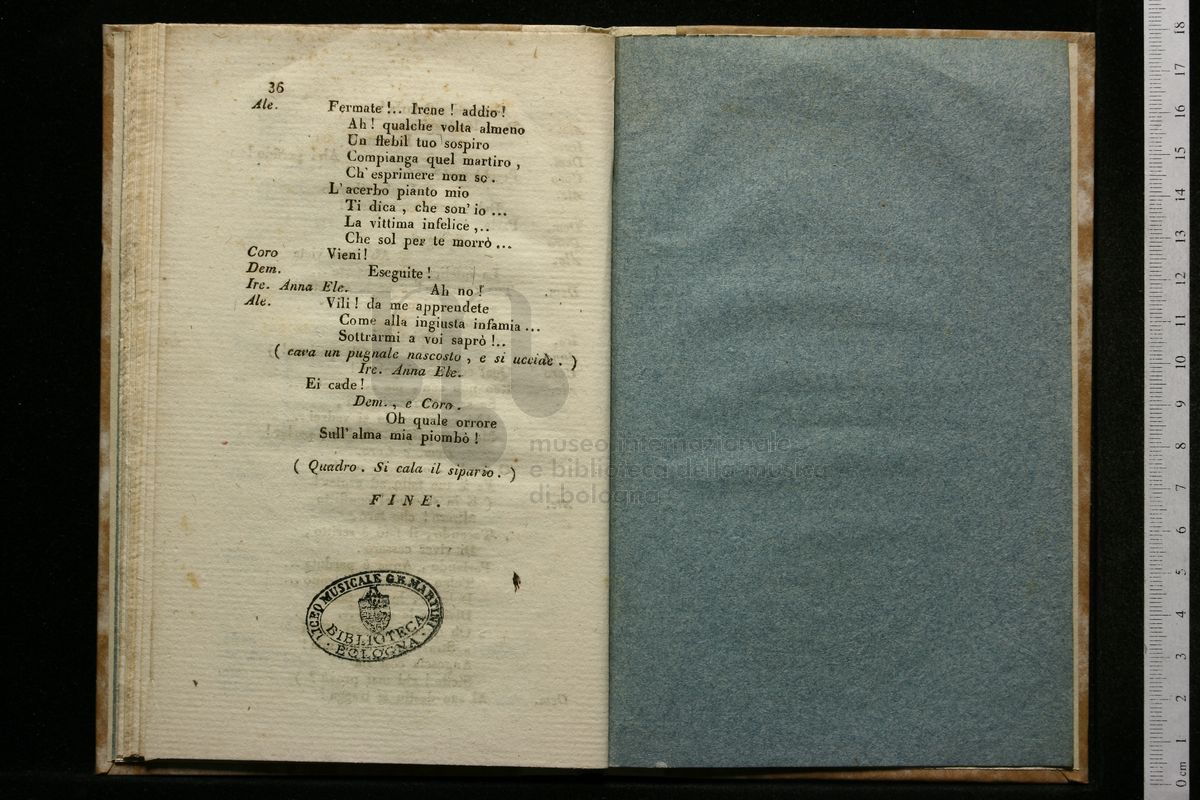 36
Ale. Fermate !.. Irene ! addio !
Ah ! qualche volta almeno
Un flebil tuo sospiro
Compianga quel martiro ,
Ch' esprimere non so .
L' acerbo pianto mio
Ti dica , che son' io ...
La vittima infelice ,..
Che sol per te morrò ...
Coro Vieni !
Dem. Eseguite !
Ire. Anna Ele. Ah no !
Ale. Vili ! da me apprendete
Come alla ingiusta infamia ...
Sottrarmi a voi saprò !..
( cava un pugnale nascosto , e si uccide . )
Ire. Anna Ele.
Ei cade !
Dem. , e Coro .
Oh quale orrore
Sull' alma mia piombò !
( Quadro . Si cala il sipario . )
FINE.
LICEO MUSICALE G.B. MARTINI
BIBLIOTECA
· BOLOGNA ·
museo internazionale
e biblioteca della musica
di bologna
0 cm 1 2 3 4 5 6 7 8 9 10 11 12 13 14 15 16 17 18